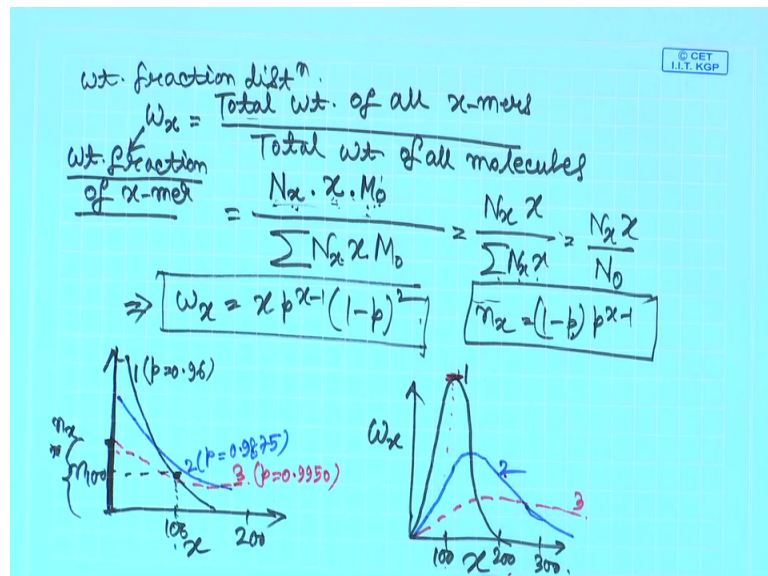 © CET
I.I.T. KGP
wt. fraction distⁿ.
Wx = Total wt. of all x-mers / Total wt of all molecules
wt. fraction
of x-mer
= Nx . x . M₀ / ∑ Nx x M₀ = Nx x / ∑ Nx x = Nx x / N₀
⇒ Wx = x p^(x-1) (1-p)²
nx = (1-p) p^(x-1)
1 (p=0.96)
2 (p=0.9875)
3 (p=0.9950)
nx
n100
100
200
x
Wx
1
2
3
100
x
200
300